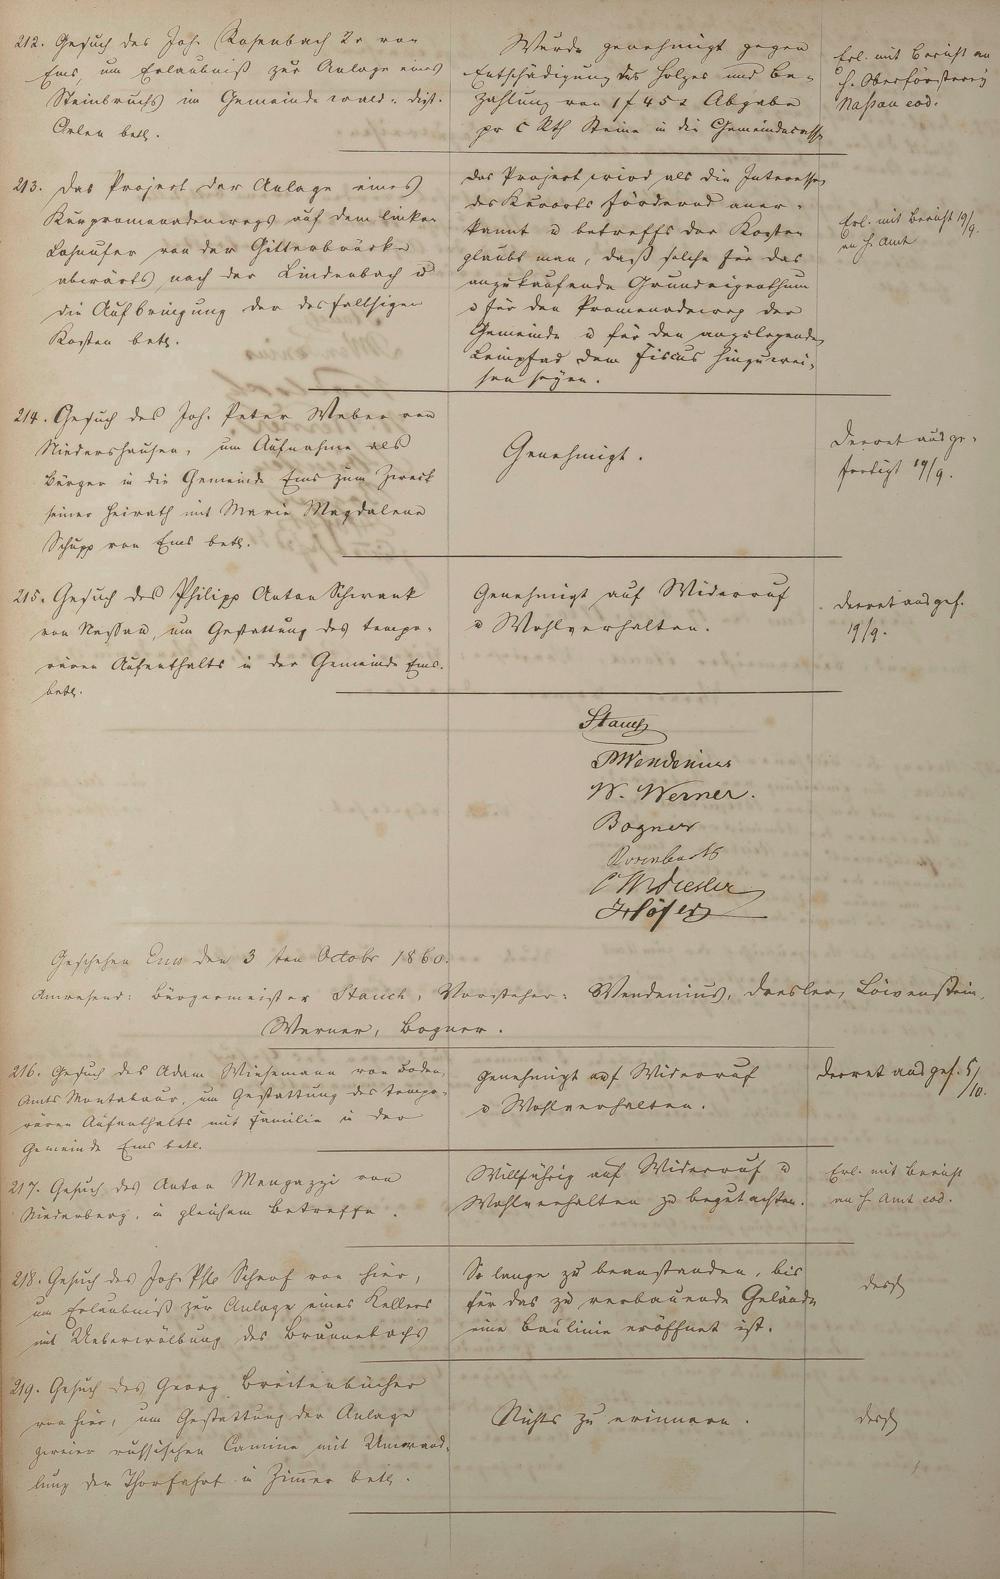 212. Gesuch des Joh. Rosenbach 2r von
Ems um Erlaubniß zur Anlage eines
Steinbruchs im Gemeindewald, dist.
betr.
Wurde genehmigt gegen
Entschädigung des Holzes und Be-
zahlung von 1 f 45 x Abgabe
pr C Rth Steine in die Gemeindecasse
Erl. mit Bericht an
H. Oberförsterey
Nassau eod.
213. Das Project der Anlage eines
Kurpromenadenwegs auf dem linken
Lahnufer von der Gitterbrücke
abwärts nach der Lindenbach u
die Aufbringung der desfallsigen
Kosten betr.
Das Project wird als die Interessen
des Kurorts fördernd aner-
kannt u betreffs der Kosten
glaubt man, daß solche für das
anzukaufende Grundeigenthum
u für den Promenadeweg der
Gemeinde u für den anzulegenden
Leinpfad dem Fiscus hinzuwei-
sen seyen.
Erl. mit Bericht 19/9.
an H. Amt
214. Gesuch des Joh. Peter Weber von
Niedershausen, um Aufnahme als
Bürger in die Gemeinde Ems zum Zweck
seiner Heirath mit Marie Magdalene
Schupp von Ems betr.
Genehmigt.
Decret ausge-
fertigt 19/9.
215. Gesuch des Philipp Anton Schwank
von Nassau, um Gestattung des tempo-
rären Aufenthalts in der Gemeinde Ems
betr.
Genehmigt auf Widerruf
u Wohlverhalten.
Decret ausgef.
19/9.
Stauch
Wendenius
W. Werner.
Bogner
Rosenbach
Dresler
Höfer
Geschehen Ems den 3ten Octobr 1860.
Anwesend: Bürgermeister Stauch, Vorsteher: Wendenius, Dresler, Löwenstein,
Werner, Bogner.
216. Gesuch des Adam Wiesemann von Boden,
Amts Montabaur, um Gestattung des tempo-
rären Aufenthalts mit Familie in der
Gemeinde Ems betr.
Genehmigt auf Widerruf
u Wohlverhalten.
Decret ausgef. 5/10.
217. Gesuch des Anton Mengazzi von
Niederberg, in gleichem Betreffe.
Willfährig auf Widerruf u
Wohlverhalten zu begutachten.
Erl. mit Bericht
an H. Amt eod.
218. Gesuch des Joh. Phlp Scharf von hier,
um Erlaubniß zur Anlage eines Kellers
mit Ueberwölbung des Braunebachs
So lange zu beanstanden, bis
für das zu verbauende Gelände
eine Baulinie eröffnet ist.
desgl
219. Gesuch des Georg Breitenbücher
von hier, um Gestattung der Anlage
zweier russischen Camine mit Umwand-
lung der Thorfahrt in Zimmer betr.
Nichts zu erinnern.
desgl